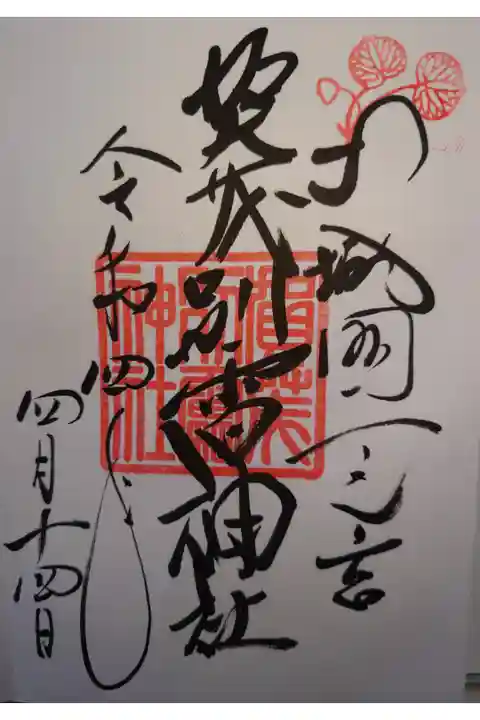 山城国一之宮
賀茂別雷神社
令和四年
四月十四日
賀茂別雷神社